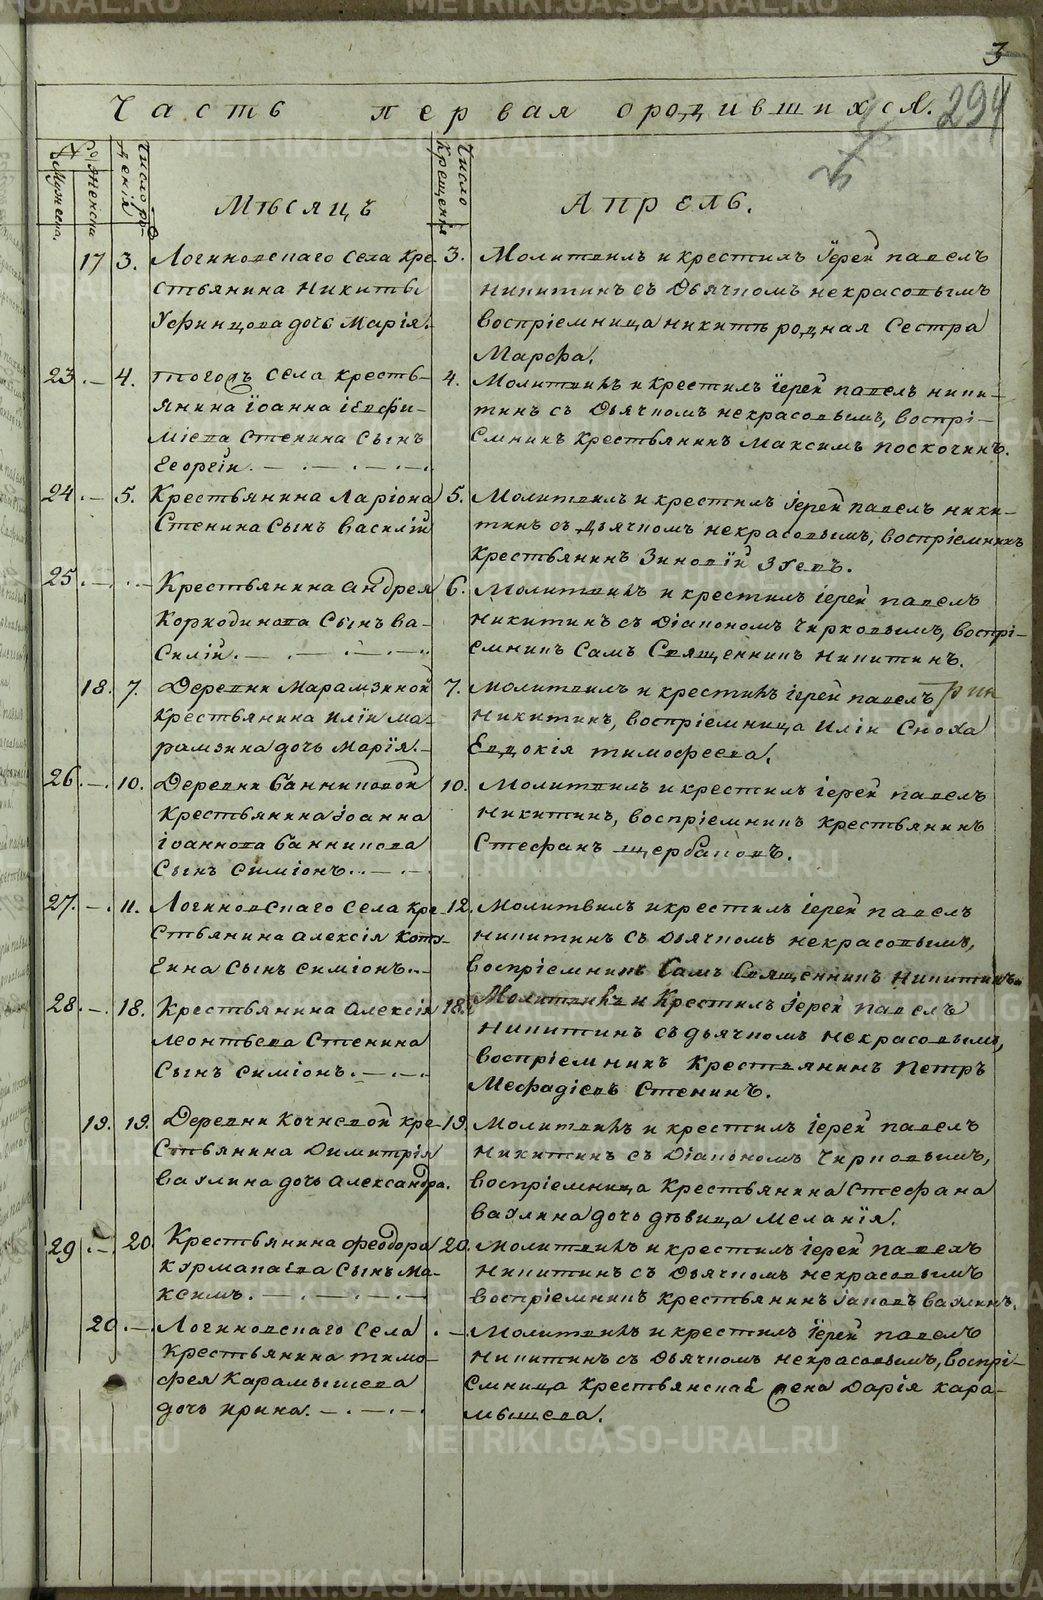 3
294
Часть первая ородившихся.
№ Мужеска.
Женска
Число рождения
Мѣсяцъ
Число крещенія
Апрель.
17 3. Логиновскаго села кре-
стьянина Никиты
Уфинцова дочь Марія.
3. Молитвилъ и крестилъ Іерей павелъ
никитинъ съ Дьячкомъ некрасовымъ
воспріемница никиты родная Сестра
Марфа.
23. — 4. тогожъ села кресть-
янина Іоанна іевфи-
міева Стенина сынъ
Георгій. — . — . — . — .
4. Молитвилъ и крестилъ іерей павелъ ники-
тинъ съ Дьячкомъ некрасовымъ, воспрі-
емникъ крестьянинъ Максимъ поскочинъ.
24. — 5. Крестьянина Ларіона
Стенина Сынъ василій
5. Молитвилъ и крестилъ іерей павелъ ники-
тинъ съ дьячкомъ некрасовымъ, воспріемникъ
крестьянинъ Зиновій Зуевъ.
25. — . — Крестьянина андрея
Коркодинова Сынъ ва-
силій. — . — . — . —
6. Молитвилъ и крестилъ іерей павелъ
Никитинъ съ Діакономъ Чирковымъ, воспрі-
емникъ Самъ Священникъ никитинъ.
18. 7. Деревни Марамзиной
крестьянина Иліи ма-
рамзина дочь Марія. —
7. Молитвилъ и крестилъ іерей павелъ
Никитинъ, воспріемница Иліи Сноха
Евдокія тимофеева.
26. — . 10. Деревни банниковой
крестьянина Іоанна
іоаннова банникова
Сынъ симіонъ. . — . — .
10. Молитвилъ и крестилъ іерей павелъ
никитинъ, воспріемникъ крестьянинъ
Стефанъ щербаковъ.
27. — . 11. Логиновскаго села кре-
стьянина алексія коту-
гина сынъ симіонъ. . —
12. Молитвилъ и крестилъ іерей павелъ
никитинъ съ Дьячкомъ некрасовымъ,
воспріемникъ Самъ Священникъ никитинъ.
28. — . 18. Крестьянина алексія
леонтьева Стенина
Сынъ симіонъ. — . — . —
18. Молитвилъ и крестилъ іерей павелъ
никитинъ съ дьячкомъ некрасовымъ,
воспріемникъ крестьянинъ Петръ
Мефадіевъ Стенинъ.
19. 19. Деревни Кочневой кре-
стьянина Димитрія
ваулина дочь александра.
19. Молитвилъ и крестилъ іерей павелъ
никитинъ съ Діакономъ Чирковымъ,
воспріемница крестьянина Стефана
ваулина дочь дѣвица Меланія.
29 . — . 20. Крестьянина Феодора
курмачева Сынъ Ма-
ксимъ. — . — . — . —
20. Молитвилъ и крестилъ іерей павелъ
никитинъ съ Дьячкомъ некрасовымъ
воспріемникъ крестьянинъ Іаковъ ваулинъ.
20 . — Логиновскаго села
крестьянина тимо-
фея Карамышева
дочь ирина. — . — . — .
. — Молитвилъ и крестилъ іерей павелъ
никитинъ съ Дьячкомъ некрасовымъ, воспрі-
емница крестьянская жена Дарія кара-
мышева.
METRIKI.GASO-URAL.RU